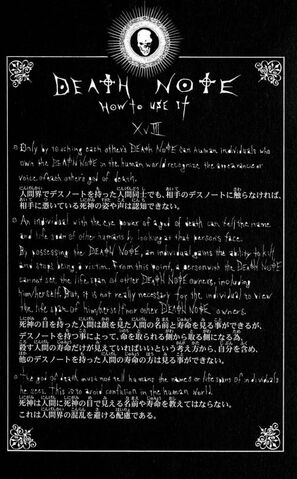 DEATH NOTE
HOW TO USE IT
XVIII
○ Only by touching each other's DEATH NOTE can human individuals who
own the DEATH NOTE in the human world recognize the appearance or
voice of each other's god of death.
人間界でデスノートを持った人間同士でも、相手のデスノートに触らなければ、
相手に憑いている死神の姿や声は認知できない。
○ An individual with the eye power of a god of death can tell the name
and life span of other humans by looking at that person's face.
By possessing the DEATH NOTE, an individual gains the ability to kill
and stops being a victim. From this point, a person with the DEATH NOTE
cannot see the life span of other DEATH NOTE owners, including
him/herself. But, it is not really necessary for the individual to view
the life span of him/herself nor other DEATH NOTE owners.
死神の目を持った人間は顔を見た人間の名前と寿命を見る事ができるが、
デスノートを持つ事によって、命を取られる側から取る側になる為、
殺す人間の寿命だけが見えていればいいという考え方から、自分を含め、
他のデスノートを持った人間の寿命の方は見る事ができない。
○ The god of death must not tell humans the names or life spans of individuals he
sees. This is to avoid confusion in the human world.
死神は人間に死神の目で見える名前や寿命を教えてはならない。
これは人間界の混乱を避ける配慮である。